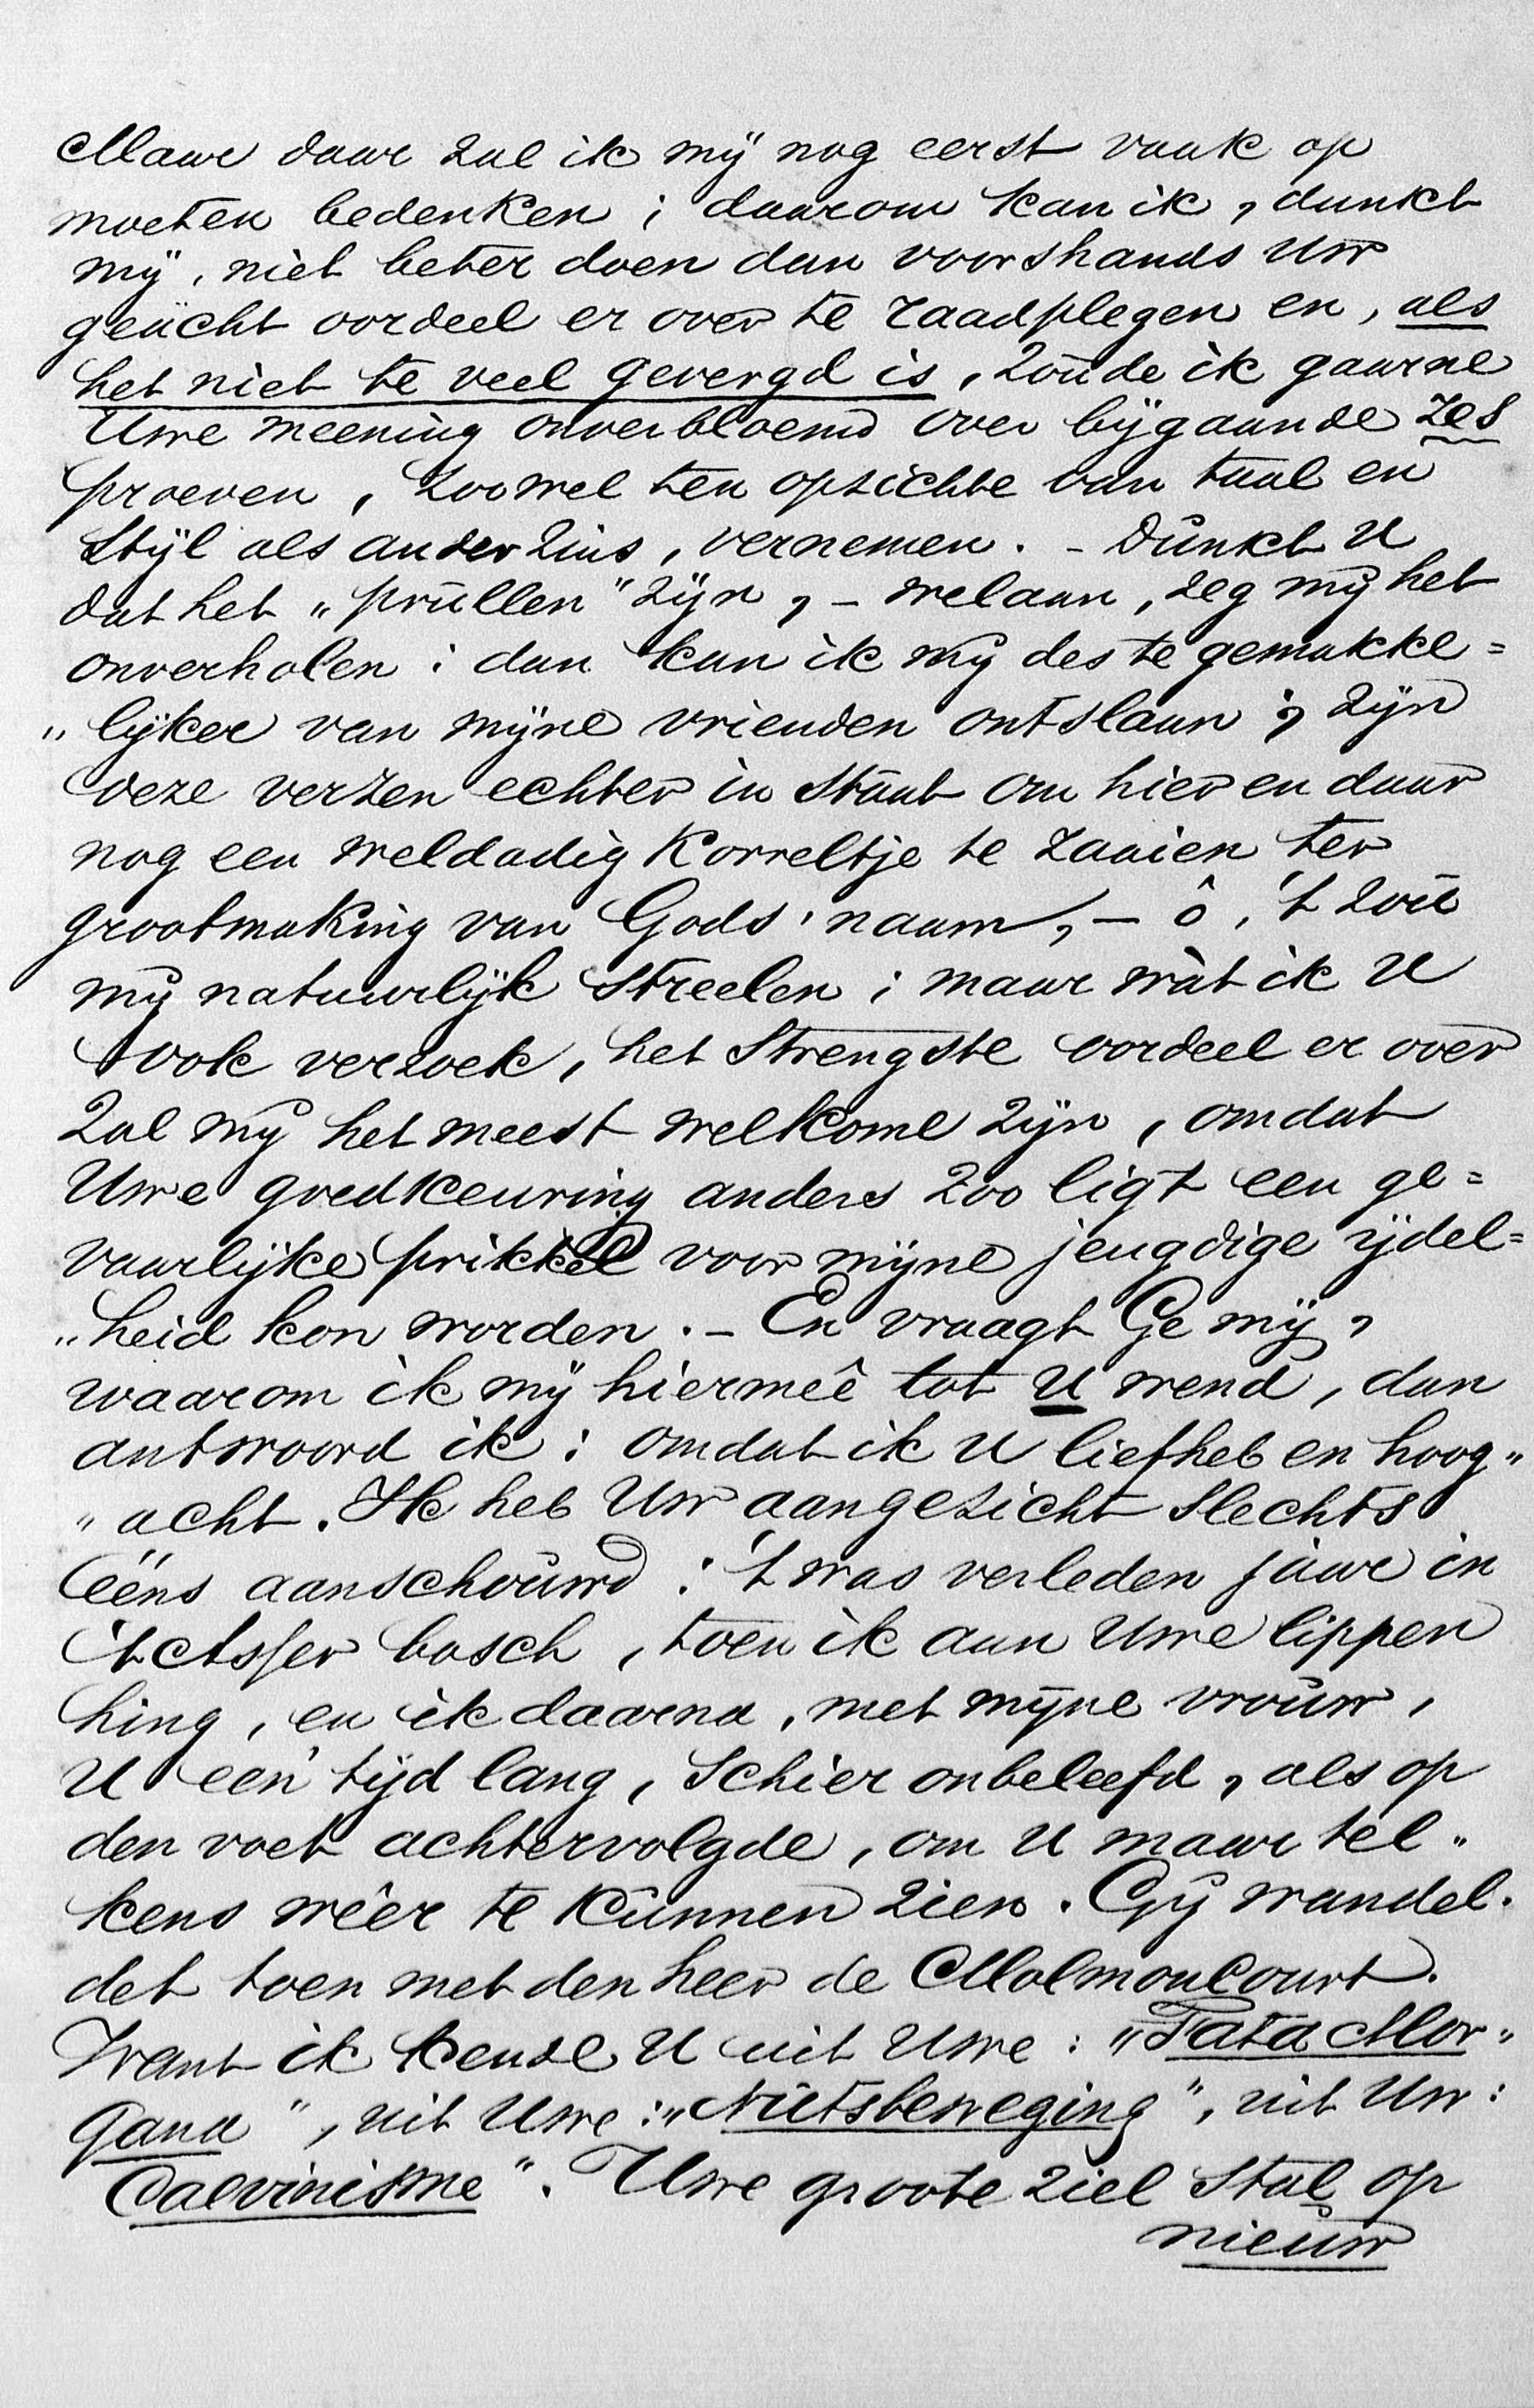 Maar daar zal ik mij nog eerst vaak op
moeten bedenken; daarom kan ik, dunkt
mij, niet beter doen dan voorshands Uw
geächt oordeel er over te raadplegen en, als
het niet te veel gevergd is, zoude ik gaarne
Uwe meening onverbloemd over bijgaande zes
proeven, zoowel ten opzichte van taal en
stijl als anderzins, vernemen. - Dunkt U
dat het „prullen" zijn, - welaan, zeg mij het
onverholen: dan kan ik mij des te gemakke=
„lijker van mijne vrienden ontslaan; zijn
deze verzen echter in staat om hier en daar
nog een weldadig korreltje te zaaien ter
grootmaking van Gods naam, - ô, 't zou
mij natuurlijk streelen; maar wàt ik U
ook verzoek, het strengste oordeel er over
zal mij het meest welkome zijn, omdat
Uwe goedkeuring anders zoo ligt een ge=
vaarlijke prikkel voor mijne jeugdige ijdel=
„heid kon worden. - En vraagt Ge mij,
waarom ik mij hiermeê tot U wend, dan
antwoord ik: omdat ik U liefheb en hoog„
„acht. Ik heb Uw aangezicht slechts
ééns aanschouwd: 't was verleden jaar in
't Asser bosch, toen ik aan Uwe lippen
hing, en ik daarna, met mijne vrouw,
U een tijd lang, schier onbeleefd, als op
den voet achtervolgde, om U maar tel„
kens wêer te kunnen zien. Gij wandel.
det toen met den heer de Molmoncourt.
Want ik kende U uit Uwe: „Fata Mor„
gana", uit Uwe: „Nutsbeweging", uit Uw:
Calvinisme". Uwe groote ziel stal op
nieuw